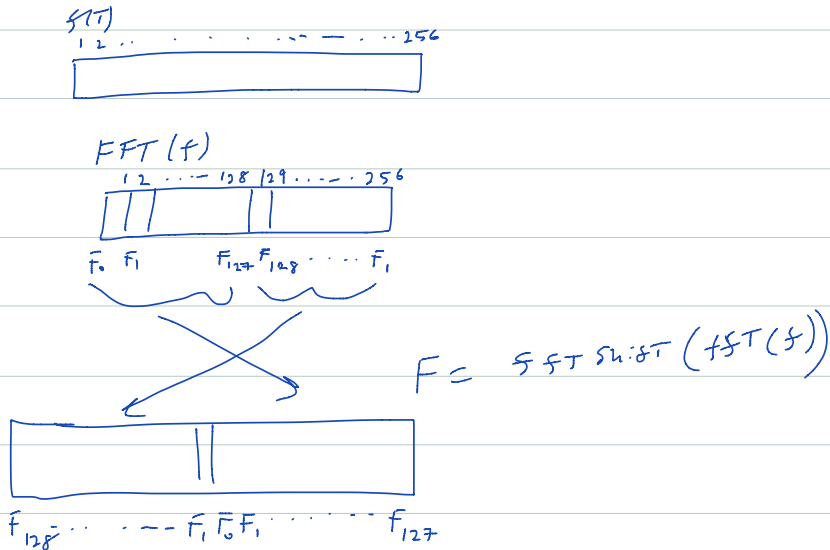 f(T)
1 2 .. . . . .-- — . .. 256
FFT (f)
1 2 ...-- 128 129 ...--. 256
F₀ F₁ F₁₂₇ F₁₂₈ ..... F₁
F = fftshift (fft(f))
F₁₂₈ - .. . . --- F₁ F₀ F₁ ....... F₁₂₇